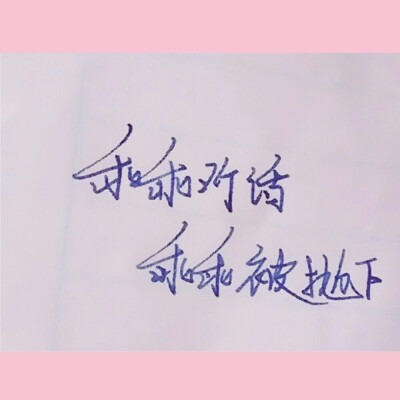 乖乖听话
乖乖被抛下